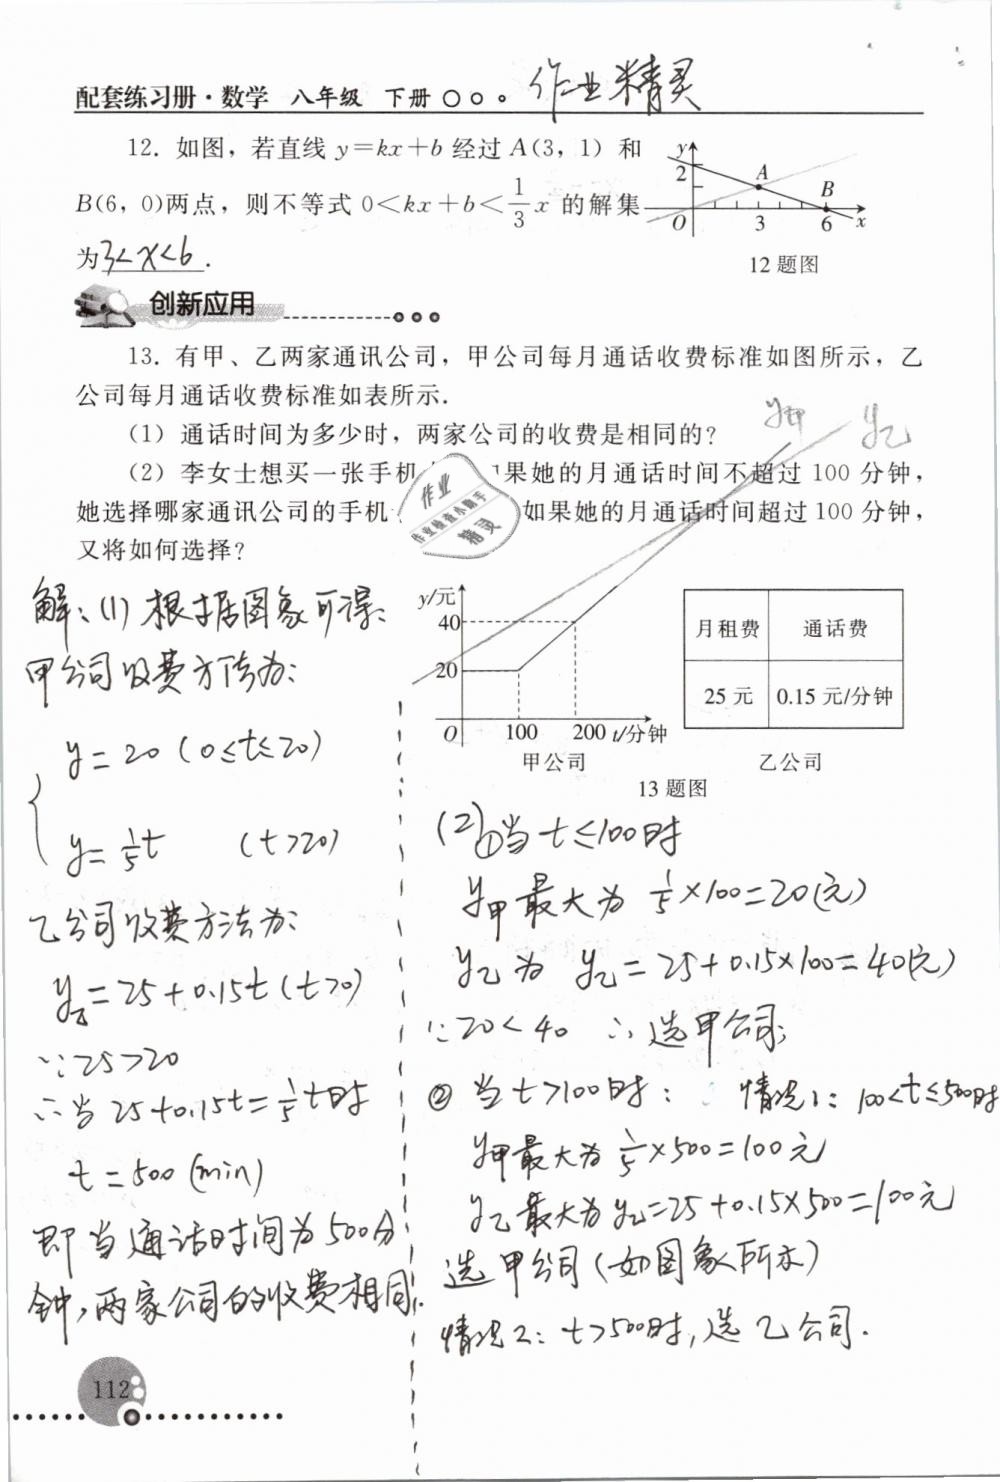 配套练习册·数学 八年级 下册
作业精灵
12. 如图，若直线 y=kx+b 经过 A(3，1) 和
B(6，0)两点，则不等式 0<kx+b<1/3x 的解集
为3<x<6.
y
2
A
B
O
3
6
x
12 题图
创新应用
13. 有甲、乙两家通讯公司，甲公司每月通话收费标准如图所示，乙
公司每月通话收费标准如表所示.
(1) 通话时间为多少时，两家公司的收费是相同的?
y甲
y乙
(2) 李女士想买一张手机 果她的月通话时间不超过 100 分钟，
她选择哪家通讯公司的手机 如果她的月通话时间超过 100 分钟，
又将如何选择?
作业
作业检查小助手
精灵
y/元
40
20
O
100
200
t/分钟
甲公司
月租费 通话费
25 元 0.15 元/分钟
乙公司
13 题图
解：(1) 根据图象可得：
甲公司收费方法为：
y=20 (0≤t≤20)
y=1/5t (t>20)
乙公司收费方法为：
y乙=25+0.15t (t>0)
∵25>20
∴当 25+0.15t=1/5t时
t=500 (min)
即当通话时间为500分
钟，两家公司的收费相同.
(2)①当 t≤100时
y甲最大为 1/5×100=20(元)
y乙为 y乙=25+0.15×100=40(元)
∵20<40 ∴选甲公司;
② 当 t>100时： 情况1：100<t≤500时
y甲最大为 1/5×500=100元
y乙最大为 y乙=25+0.15×500=100元
选甲公司(如图象所示)
情况2：t>500时，选乙公司.
112